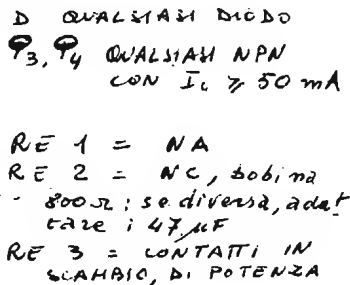 D QUALSIASI DIODO
Q3, Q4 QUALSIASI NPN
CON Ic ≥ 50 mA
RE 1 = NA
RE 2 = NC, bobina
800 Ω ; se diversa, adat
tare i 47 µF
RE 3 = CONTATTI IN
SCAMBIO, DI POTENZA